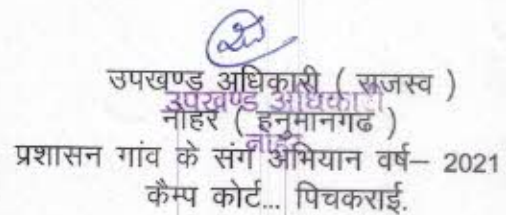 उपखण्ड अधिकारी ( राजस्व )
उपखण्ड अधिकारी
नोहर ( हनुमानगढ )
नोहर
प्रशासन गांव के संग अभियान वर्ष– 2021
कैम्प कोर्ट... पिचकराई.